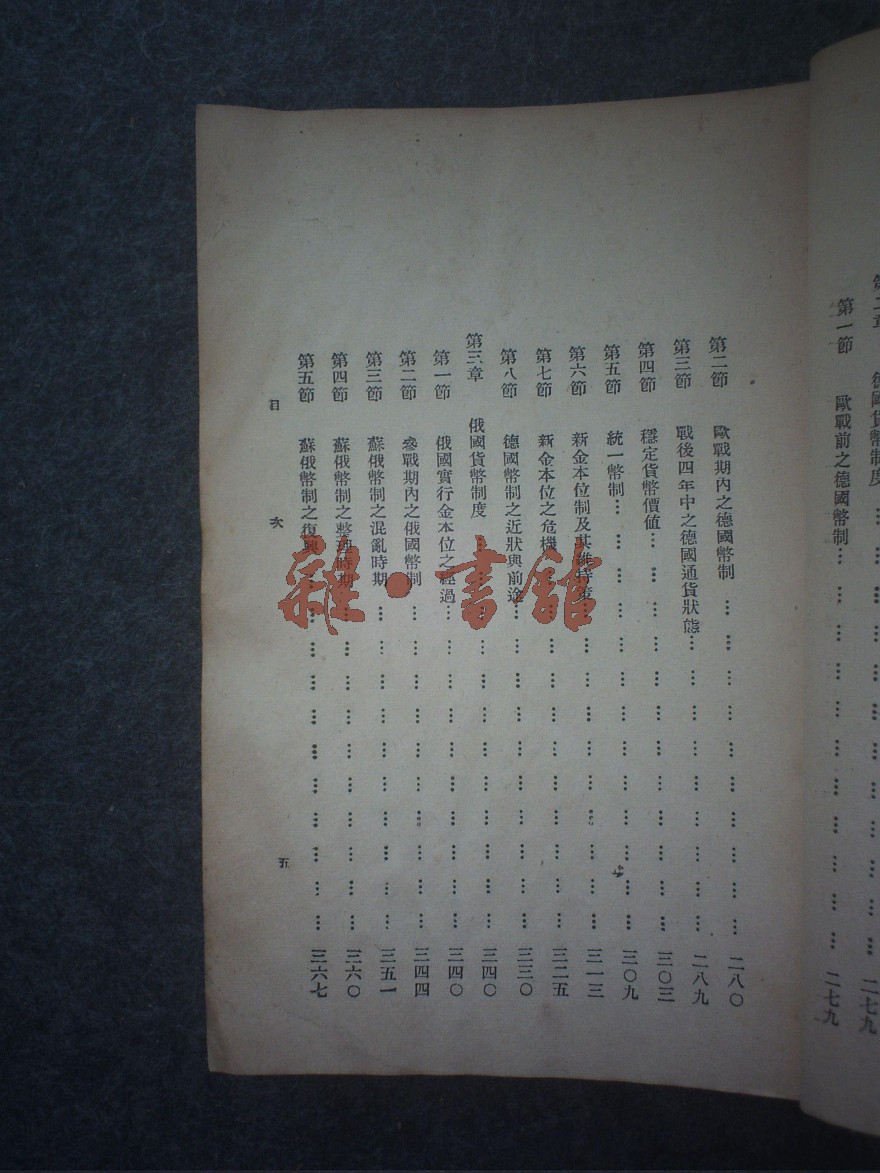 第二章 德國貨幣制度 … … … … … … … … … … … … … 二七九
第一節 歐戰前之德國幣制… … … … … … … … … … … … 二七九
第二節 歐戰期內之德國幣制 … … … … … … … … … … 二八〇
第三節 戰後四年中之德國通貨狀態… … … … … … … … … 二八九
第四節 穩定貨幣價值… … … … … … … … … … … … 三〇三
第五節 統一幣制… … … … … … … … … … … … … 三〇九
第六節 新金本位制及其維持策… … … … … … … … … … 三一三
第七節 新金本位之危機… … … … … … … … … … … 三二五
第八節 德國幣制之近狀與前途… … … … … … … … … … 三三〇
第三章 俄國貨幣制度 … … … … … … … … … … … … 三四〇
第一節 俄國實行金本位之經過… … … … … … … … … … 三四〇
第二節 參戰期內之俄國幣制 … … … … … … … … … … 三四四
第三節 蘇俄幣制之混亂時期 … … … … … … … … … … 三五一
第四節 蘇俄幣制之整理時期 … … … … … … … … … … 三六〇
第五節 蘇俄幣制之復興… … … … … … … … … … … 三六七
目 次 五
雜·書館